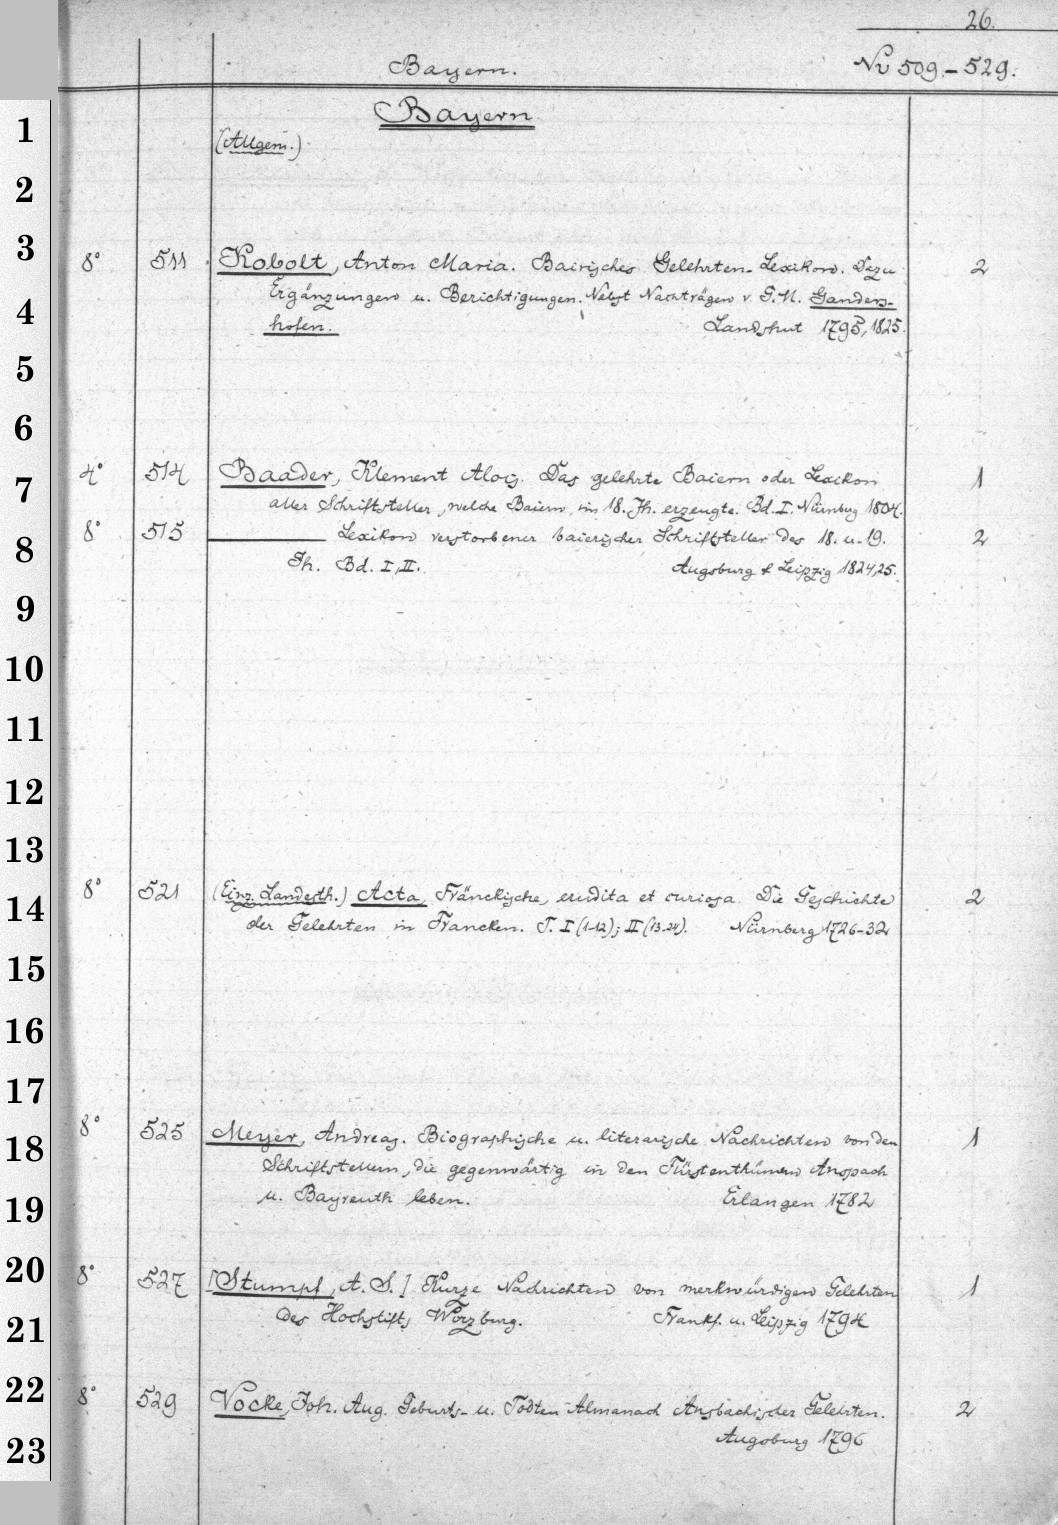 26.
Bayern. No 509.-529.
Bayern
1
(Allgem.)
2
3
8° 511 Kobolt, Anton Maria. Bairisches Gelehrten-Lexikon. Dazu 2
Ergänzungen u. Berichtigungen. Nebst Nachträgen v. G. M. Ganders-
4
hofen. Landshut 1795, 1825.
5
6
4° 514 Baader, Klement Alois. Das gelehrte Baiern oder Lexikon 1
7
aller Schriftsteller, welche Baiern im 18. Jh. erzeugte. Bd. I. Nürnbug 1804.
8° 515 Lexikon verstorbener baierischer Schriftsteller des 18. u. 19. 2
8
Jh. Bd. I, II. Augsburg & Leipzig 1824,25.
9
10
11
12
13
8° 521 (Einz. Landesth.) Acta, Fränckische, erudita et curiosa. Die Geschichte 2
14
der Gelehrten in Francken. T. I (1-12); II (13-24). Nürnberg 1726-32
15
16
17
8° 525 Meyer, Andreas. Biographische u. literarische Nachrichten von den 1
18
Schriftstellern, die gegenwärtig in den Fürstenthümern Anspach
19
u. Bayreuth leben. Erlangen 1782
20
8° 527 [Stumpf, A. S.] Kurze Nachrichten von merkwürdigen Gelehrten 1
21
des Hochstifts Wirzburg. Frankf. u. Leipzig 1794
22
8° 529 Vocke, Joh. Aug. Geburts- u. Todten-Almanach Ansbachischer Gelehrten. 2
23
Augsburg 1796